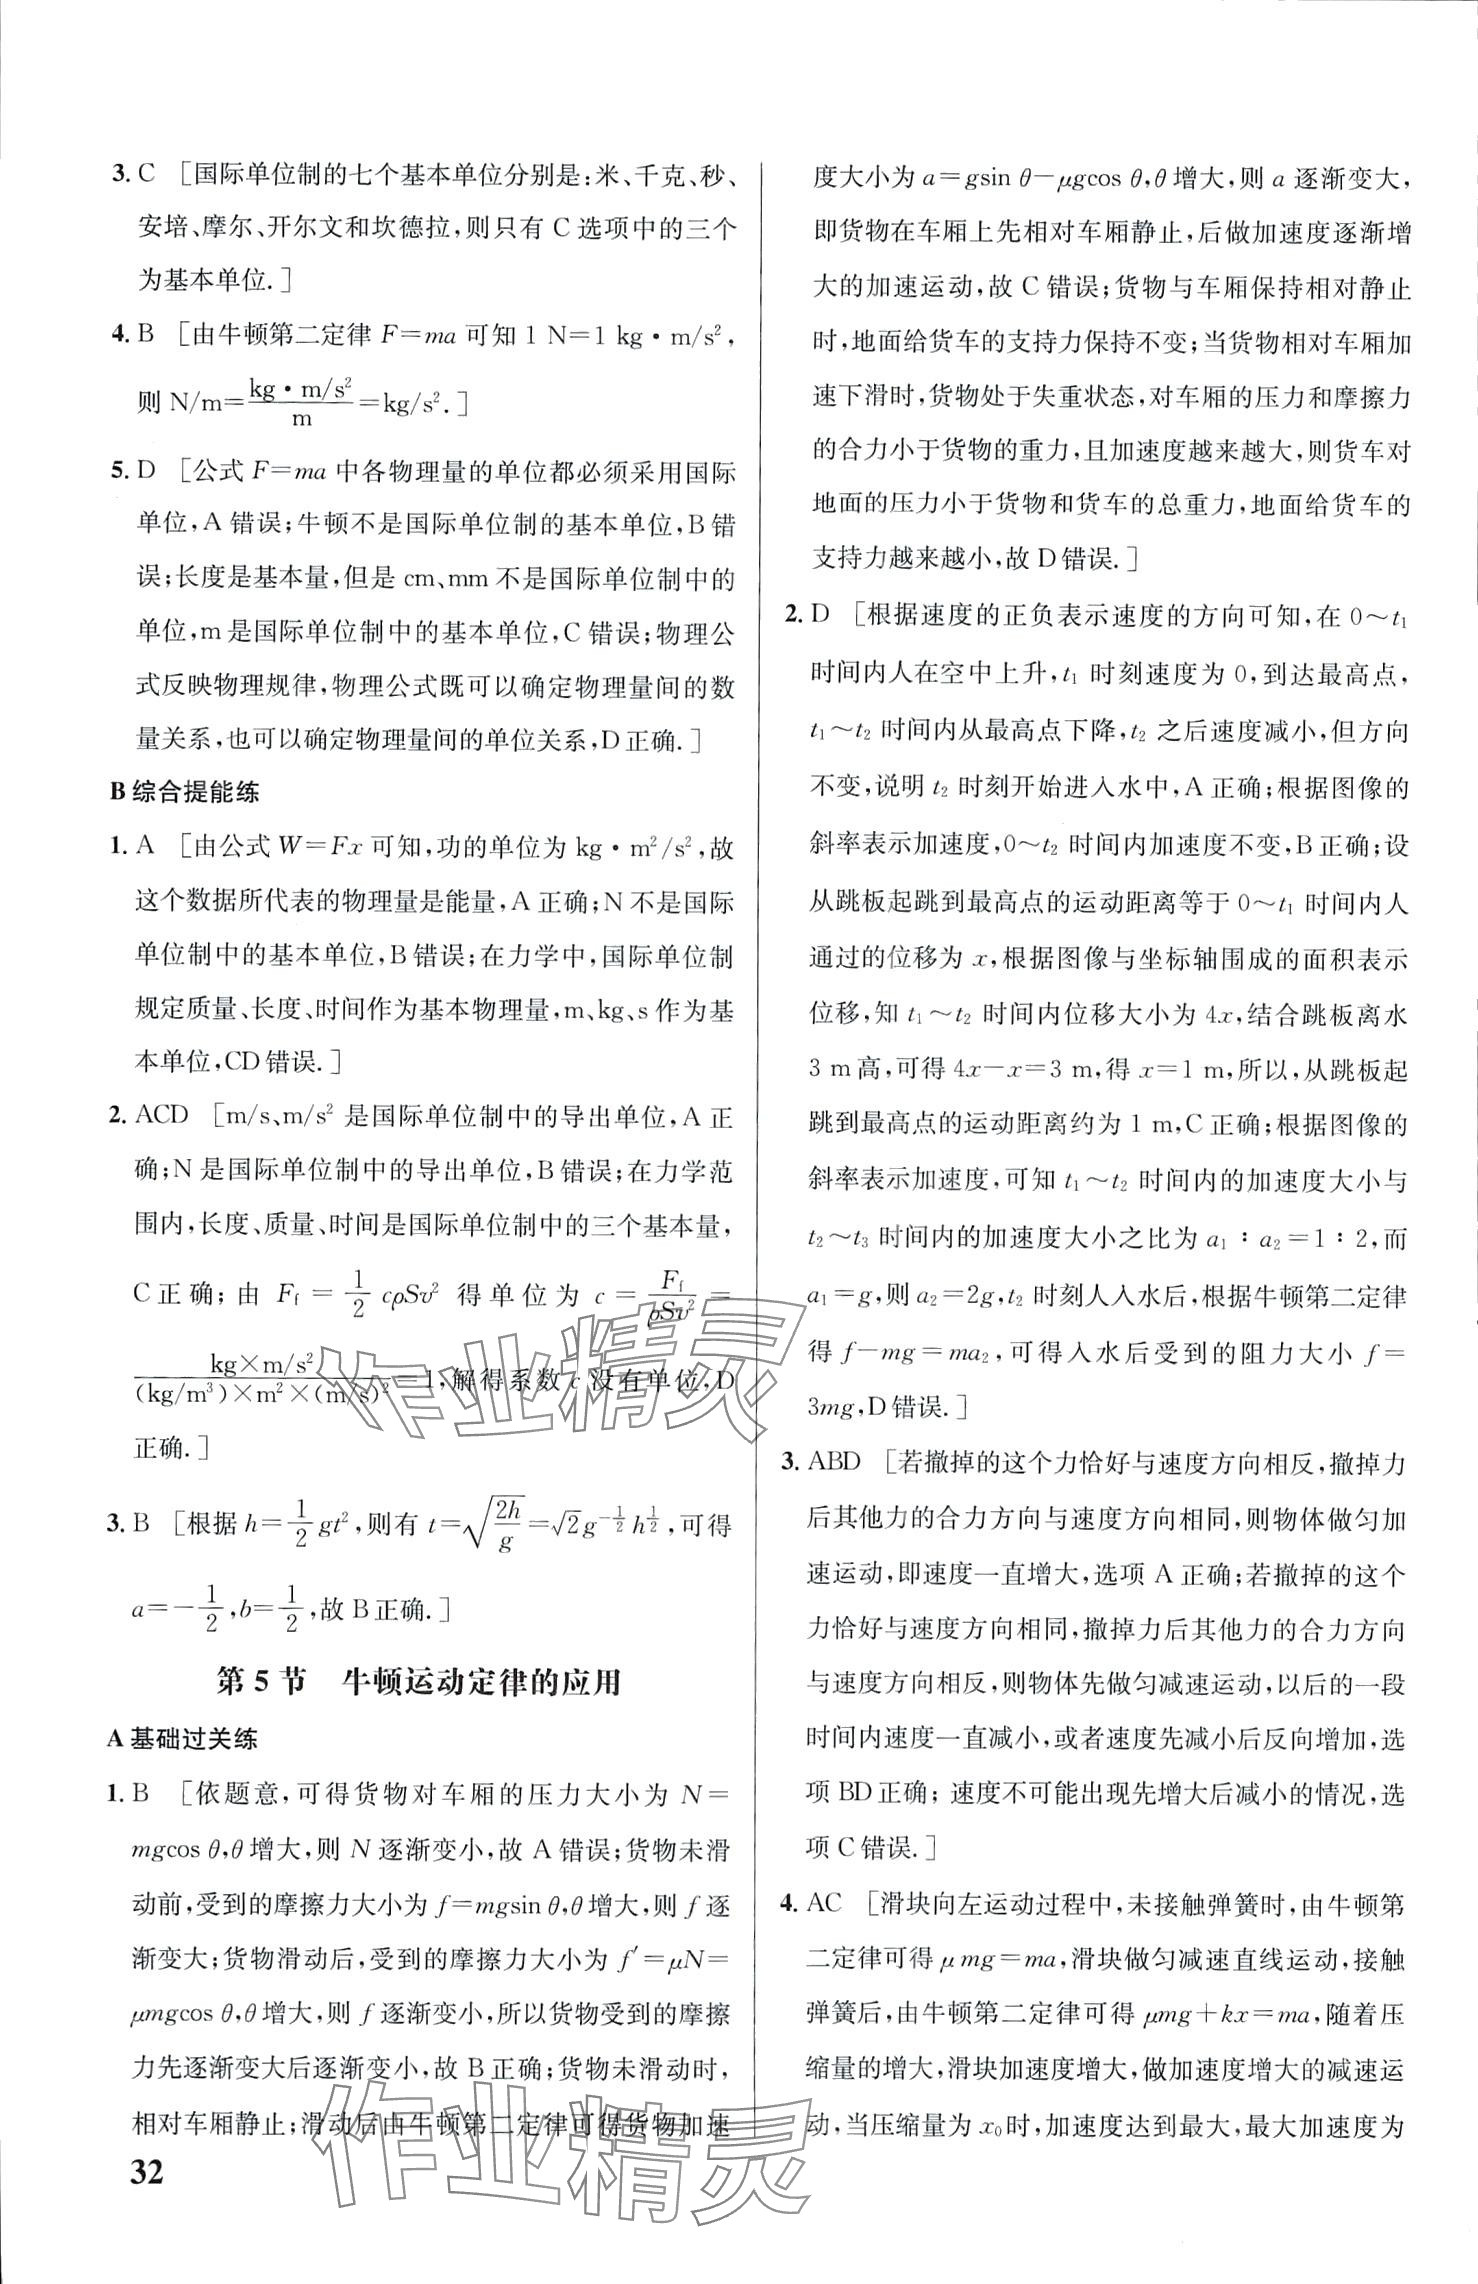 3. C [国际单位制的七个基本单位分别是:米、千克、秒、
安培、摩尔、开尔文和坎德拉,则只有 C 选项中的三个
为基本单位.]
4. B [由牛顿第二定律 F=ma 可知 1 N=1 kg·m/s²,
则 N/m=kg·m/s²/m=kg/s².]
5. D [公式 F=ma 中各物理量的单位都必须采用国际
单位,A 错误;牛顿不是国际单位制的基本单位,B 错
误;长度是基本量,但是 cm、mm 不是国际单位制中的
单位,m 是国际单位制中的基本单位,C 错误;物理公
式反映物理规律,物理公式既可以确定物理量间的数
量关系,也可以确定物理量间的单位关系,D 正确.]
B 综合提能练
1. A [由公式 W=Fx 可知,功的单位为 kg·m²/s²,故
这个数据所代表的物理量是能量,A 正确;N 不是国际
单位制中的基本单位,B 错误;在力学中,国际单位制
规定质量、长度、时间作为基本物理量,m、kg、s 作为基
本单位,CD 错误.]
2. ACD [m/s、m/s² 是国际单位制中的导出单位,A 正
确;N 是国际单位制中的导出单位,B 错误;在力学范
围内,长度、质量、时间是国际单位制中的三个基本量,
C 正确;由 Ff=1/2 cρSv² 得单位为 c=Ff/ρSv²=
kg×m/s²/(kg/m³)×m²×(m/s)²=1,解得系数 c 没有单位,D
正确.]
3. B [根据 h=1/2 gt²,则有 t=√(2h/g)=√2 g^(-1/2) h^(1/2),可得
a=-1/2,b=1/2,故 B 正确.]
第 5 节 牛顿运动定律的应用
A 基础过关练
1. B [依题意,可得货物对车厢的压力大小为 N=
mgcos θ,θ 增大,则 N 逐渐变小,故 A 错误;货物未滑
动前,受到的摩擦力大小为 f=mgsin θ,θ 增大,则 f 逐
渐变大;货物滑动后,受到的摩擦力大小为 f′=μN=
μmgcos θ,θ 增大,则 f 逐渐变小,所以货物受到的摩擦
力先逐渐变大后逐渐变小,故 B 正确;货物未滑动时,
相对车厢静止;滑动后由牛顿第二定律可得货物加速
32
度大小为 a=gsin θ-μgcos θ,θ 增大,则 a 逐渐变大,
即货物在车厢上先相对车厢静止,后做加速度逐渐增
大的加速运动,故 C 错误;货物与车厢保持相对静止
时,地面给货车的支持力保持不变;当货物相对车厢加
速下滑时,货物处于失重状态,对车厢的压力和摩擦力
的合力小于货物的重力,且加速度越来越大,则货车对
地面的压力小于货物和货车的总重力,地面给货车的
支持力越来越小,故 D 错误.]
2. D [根据速度的正负表示速度的方向可知,在 0～t₁
时间内人在空中上升,t₁ 时刻速度为 0,到达最高点,
t₁～t₂ 时间内从最高点下降,t₂ 之后速度减小,但方向
不变,说明 t₂ 时刻开始进入水中,A 正确;根据图像的
斜率表示加速度,0～t₂ 时间内加速度不变,B 正确;设
从跳板起跳到最高点的运动距离等于 0～t₁ 时间内人
通过的位移为 x,根据图像与坐标轴围成的面积表示
位移,知 t₁～t₂ 时间内位移大小为 4x,结合跳板离水
3 m 高,可得 4x-x=3 m,得 x=1 m,所以,从跳板起
跳到最高点的运动距离约为 1 m,C 正确;根据图像的
斜率表示加速度,可知 t₁～t₂ 时间内的加速度大小与
t₂～t₃ 时间内的加速度大小之比为 a₁∶a₂=1∶2,而
a₁=g,则 a₂=2g,t₂ 时刻人入水后,根据牛顿第二定律
得 f-mg=ma₂,可得入水后受到的阻力大小 f=
3mg,D 错误.]
3. ABD [若撤掉的这个力恰好与速度方向相反,撤掉力
后其他力的合力方向与速度方向相同,则物体做匀加
速运动,即速度一直增大,选项 A 正确;若撤掉的这个
力恰好与速度方向相同,撤掉力后其他力的合力方向
与速度方向相反,则物体先做匀减速运动,以后的一段
时间内速度一直减小,或者速度先减小后反向增加,选
项 BD 正确;速度不可能出现先增大后减小的情况,选
项 C 错误.]
4. AC [滑块向左运动过程中,未接触弹簧时,由牛顿第
二定律可得 μmg=ma,滑块做匀减速直线运动,接触
弹簧后,由牛顿第二定律可得 μmg+kx=ma,随着压
缩量的增大,滑块加速度增大,做加速度增大的减速运
动,当压缩量为 x₀ 时,加速度达到最大,最大加速度为
作业精灵
作业精灵